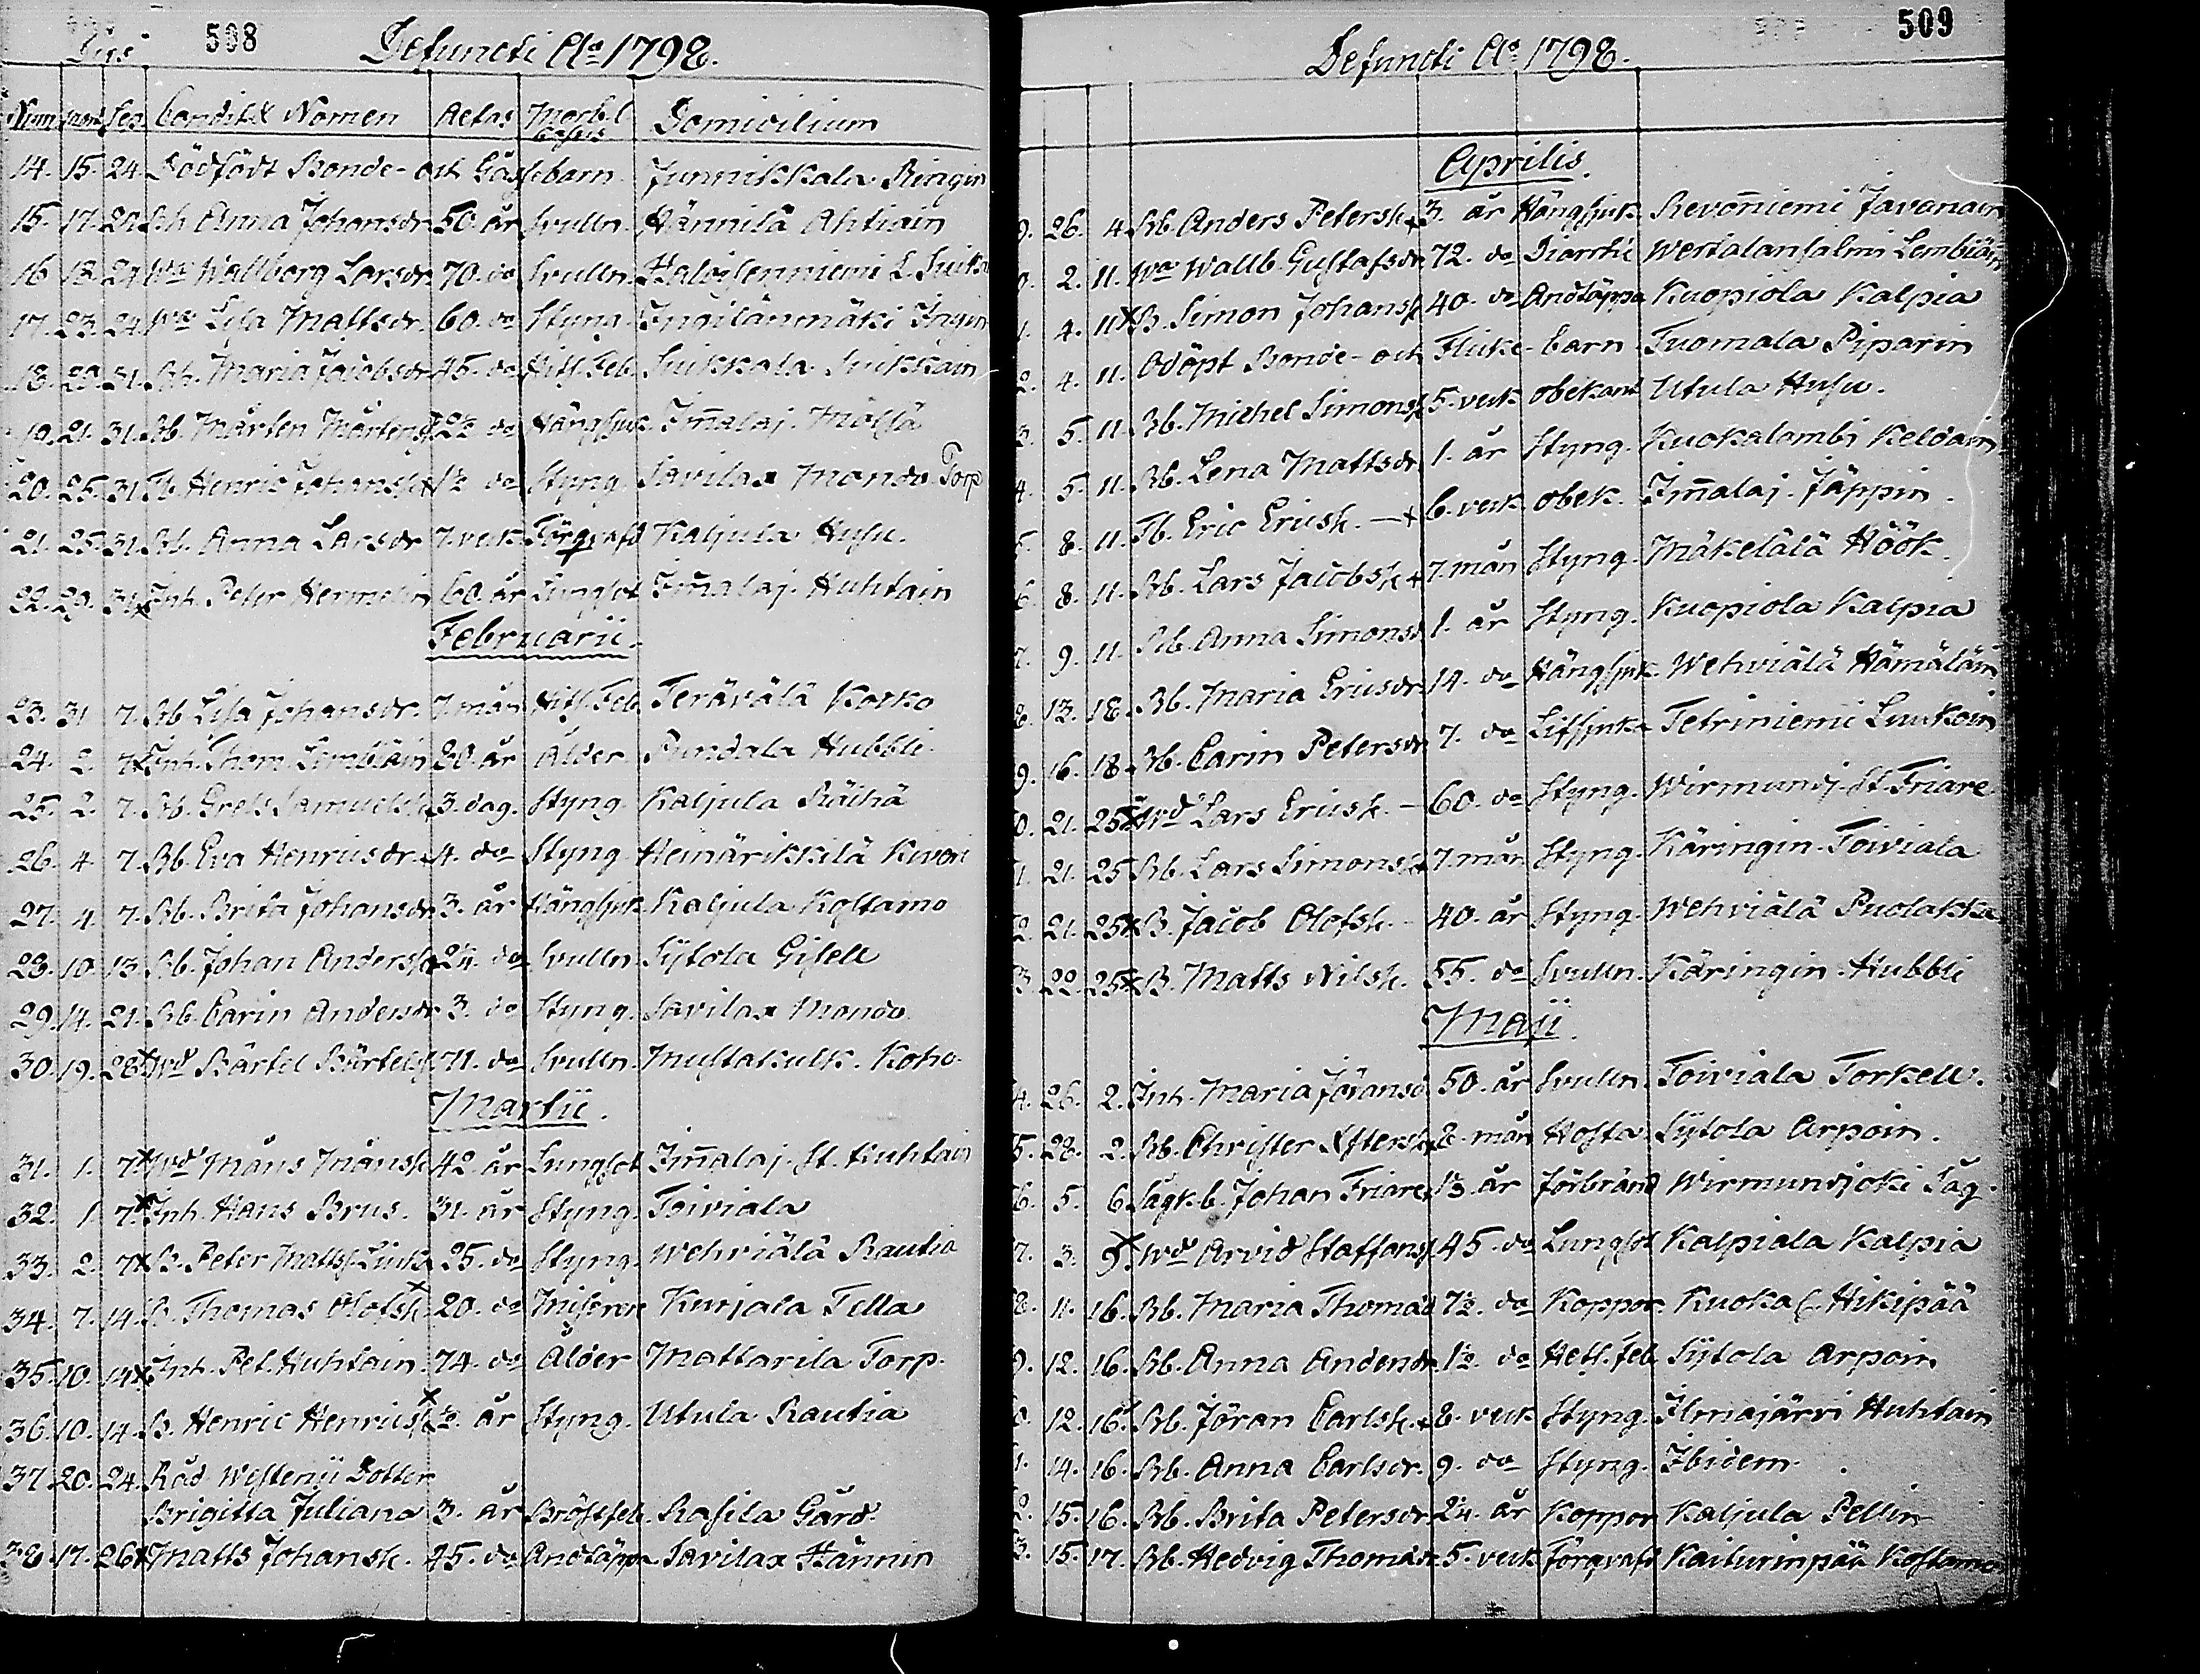 508
Defuncti Ao 1798.
Num Mort Sep. Condit. & Nomen Aetas Morb. l. casus Domicilium
14. 15. 24. Dödfödt Bonde- och Gåssebarn Junnikkala Ringin
15. 17. 24. Bh. Anna Johansdr 50. år Svulln. Hännilä Ahtiain
16. 18. 24. Wa Wallborg Larsdr 70. do Svulln.
17. 23. 24. Wa Lisa Mattsdr. 60. do Styng. Ingilänmäki Ingin
18. 29. 31. Bh. Maria Jacobsdr 45. do Hits. Feb. Suikkala Suikkain
19. 21. 31. Bb. Mårten Mårtenss 2½ do Hängsjuk Im̄alaj. Mölsä
20. 25. 31. Tb. Henric Johanss. 1½ do Styng. Savilax Mando Torp
21. 25. 31. Bb. Anna Larsdr 7. veck. Förqvafd Kaljula Husu.
22. 29. 31. Inh. Peter Hermelin 60. år Lungsot Im̄alaj. Huhtain
Februarii.
23. 31. 7. Bb Lisa Johansdr. 7. mån Hits. Feb. Terävälä Korko
24. 2. 7. Inh. Thom. Lembiäin 80. år Ålder Pundala Hubbli
25. 2. 7. Bb. Grels Samuelss. 3. dag. Styng. Kaljula Räihä
26. 4. 7. Bb. Eva Henricsdr. 4. do Styng. Heinärikkilä Kiveri
27. 4. 7. Bb. Brita Johansdr 3. år Hängsjuk Kaljula Kostamo
28. 10. 13. Bb. Johan Anderss. 2¼. do Svulln. Sÿtola Gisell
29. 14. 21. Bb. Carin Andersdr 3. do Styng. Savilax Mando
30. 19. 28. Wd Bärtil Bärtelss 71. do Svulln. Mustakulk. Koho.
Martii.
31. 1. 7. Wd Måns Månss. 42. år Lungsot Im̄alaj. St. Huhtain
32. 1. 7. Inh. Hans Brus. 31. år Styng. Toiviala
33. 2. 7. B. Peter Mattss. 25. do Styng. Wehviälä Rautia
34. 7. 14. B. Thomas Olofss. 20. do Miserere Kurjala Tella
35. 10. 14. Inh. Pet. Huhtain. 74. do Ålder Mattarila Torp.
36. 10. 14. B. Henric Henricss ½. år Styng. Utula Rautia
37. 20. 24. Råd Westenii Dotter
Brigitta Juliana 3. år Bröstfeb. Rasila Gård
38. 17. 26. Matts Johanss. 45. do Andtäppa Savilax Hännin
509
Defuncti Ao 1798.
Aprilis.
26. 4. Bb. Anders Peterss. 3. år Hängsjuk. Revon̄iemi Javanain
2. 11. Wa Wallb. Gustafsdr 72. do Diarrhé Wertalansalmi Lembiäin
4. 11. B. Simon Johanss. 40. do Andtäppa Kuopiola Kalpia
4. 11. Odöpt Bonde- och Flicke-barn Tuomala Piparin
5. 11. Bb. Michel Simonss 5. veck obekant Utula Husu.
5. 11. Bb. Lena Mattsdr 1. år Styng. Kuokalambi Keldain
8. 11. Tb. Eric Ericss. — 6. veck obek. Im̄alaj. Jäppin.
8. 11. Bb. Lars Jacobss. 7. mån Styng. Mäkelälä Höök
9. 11. Bb. Anna Simonsd. 1. år Styng. Kuopiola Kalpia
13. 18. Bb. Maria Ericsdr. 14. do Hängsjuk. Wehviälä Hämäläin
16. 18. Bb. Carin Petersdr 7. do Tetriniemi Luukoin
21. 25. Wd Lars Ericss. — 60. do Styng. Wirmundj. St. Friare
21. 25. Bb. Lars Simonss. 7. mån Styng. Käringin Toiviala
21. 25. B. Jacob Olofss. — 40. år Styng. Wehviälä Puolakka
22. 25. B. Matts Nilss. 55. do Svulln. Käringin Hubbli
Maji.
26. 2. Inh. Maria Jöransd. 50. år Svulln. Toiviala Torkell.
28. 2. Bb. Christer 8. mån Hosta Sÿtola Arpoin.
5. 6. Sågk. b. Johan Friare 1½ år förbränd Wirmundjoki Såg.
3. 9. Wd Arvid Staffanss 45. do Lungsot Kalpiala Kalpia
11. 16. Bb. Maria Thomæd 7½. do Koppor. Kuoka l. Hikipää
12. 16. Bb. Anna Andersdr 1½. do Hets. feb Sÿtola Arpoin
12. 16. Bb. Jöran Carlss. 8. veck Styng. Ilmajärvi Huhtain
14. 16. Bb. Anna Carlsdr. 9. do Styng. Ibidem.
15. 16. Bb. Brita Petersdr 2¼. år Koppor Kaljula Pellin
15. 17. Bb. Hedvig Thomædr 5. veck Förqvafd Kaiturinpää Kostamo